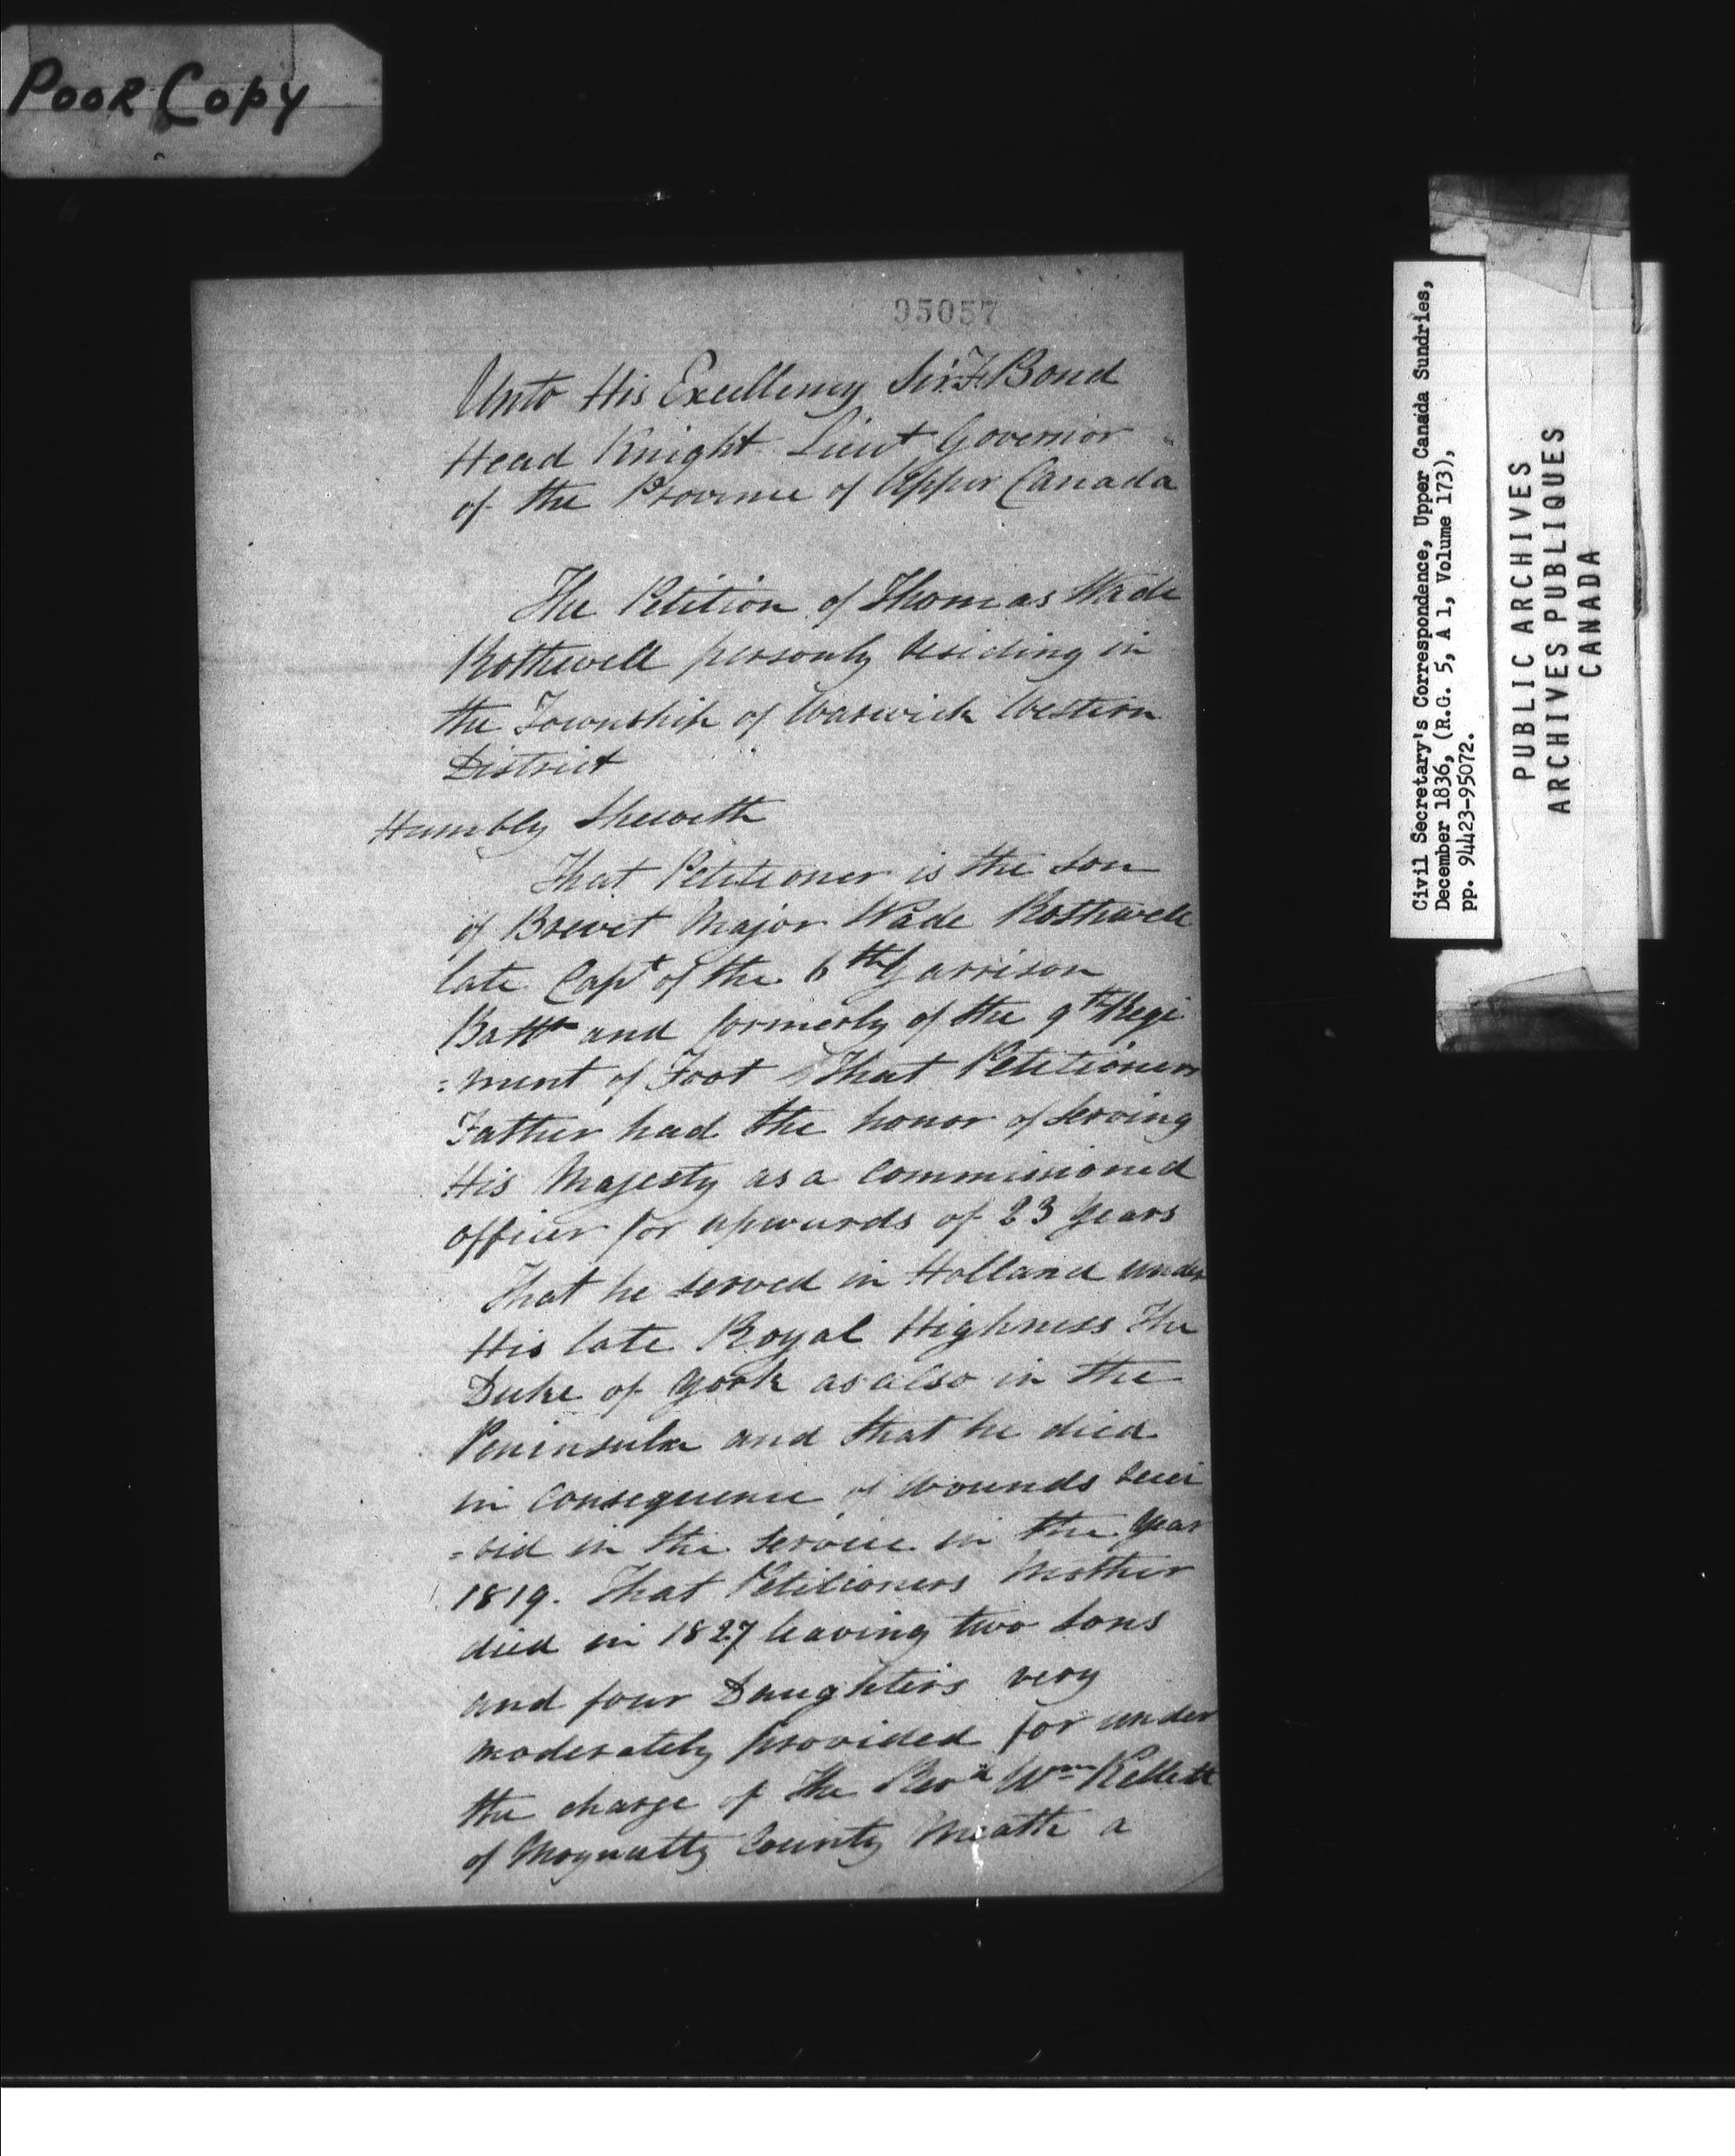 Poor Copy
95057
Unto His Excellency Sir F. Bond
Head Knight Lieut Governor
of the Province of Upper Canada
The Petition of Thomas Wade
Rothwell residing in
the Township of Warwick Western
District
Humbly Sheweth
That Petitioner is the son
of Brevet Major Wade Rothwell
late Capt of the 6th Garrison
Battn and formerly of the 9th Regi
=ment of Foot That Petitioners
Father had the honor of serving
His Majesty as a Commissioned
officer for upwards of 23 years
That he served in Holland under
His late Royal Highness The
Duke of York as also in the
Peninsula and that he died
in consequence of wounds recei
=ved in the service in the year
1819. That Petitioners Mother
died in 1827 leaving two sons
and four Daughters very
moderately provided for under
the charge of the Revd Wm Kellett
of County Meath a
Civil Secretary's Correspondence, Upper Canada Sundries,
December 1836, (R.G. 5, A 1, Volume 173),
pp. 94423-95072.
PUBLIC ARCHIVES
ARCHIVES PUBLIQUES
CANADA